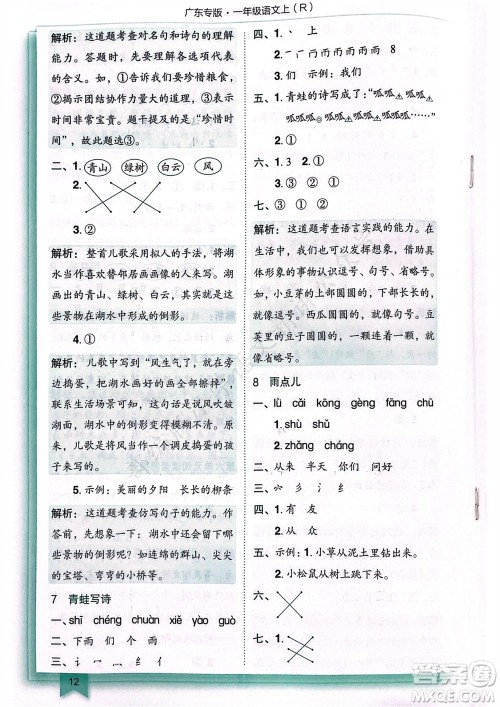 广东专版·一年级语文上（R）
解析：这道题考查对名句和诗句的理解
能力。答题时，一定要理解句意，
如，①告诉我们要珍惜粮食，
②揭示团结协作力量大的道理，③
表示时间非常宝贵。题干提及的“珍惜时
间”，故此题选③。
二、1. 青山 绿树 白云 风
解析：整首儿歌采用拟人的手法，将湖
水当作喜欢替邻居画画像的人来写。湖
画出的青山、绿树、白云，其实就是这
些景物在湖水中形成的倒影。
4. ①
解析：儿歌中写到“风生气了，就在旁
边捣蛋，把湖水画的画全部擦掉”，
联系生活场景可知，这是说风吹皱
湖面，湖水中的倒影变得模糊不清。原
来，儿歌是将风当作一个调皮捣蛋的孩
子来写的。
5. 示例：美丽的夕阳 长长的柳条
解析：这道题考查仿写句子的能力。作
答前，先想一想：湖水中还可能有哪
些景物的倒影？如连绵的群山、尖尖
的宝塔、弯弯的小桥等。
7 青蛙写诗
一、shī chéng chuàn xiě yào guò
二、下雨 们 个 雨
12
四、1. 丶
2. 8
3. 们 示例：我们
五、1. 青蛙的诗写成了：“呱呱，呱呱，
呱呱呱。呱呱，呱呱，呱呱呱……”
2. ①
六、1. 3 ② ①
3. ③ ① ②
解析：这道题考查语言实践的能力。在
生活中，我们也可以发挥想象，借助
具体形象的事物认识逗号、句号、省略号。
如，小豆芽的上部圆圆的，下部长长的，
就像逗号。西瓜圆圆的，就像句号。豆
荚里的豆子圆圆的，一颗连着一颗，
就像省略号。
8 雨点儿
一、1. lǜ cǎi kōng gèng fāng chū
shù shǔ
2. zhǎng cháng
二、从来 半天 你们 问好
四、1. 从 众
2. 有 友
五、示例：1. 小草从土里长出来了
2. 小松鼠从树上跳下来
六、
七、1.